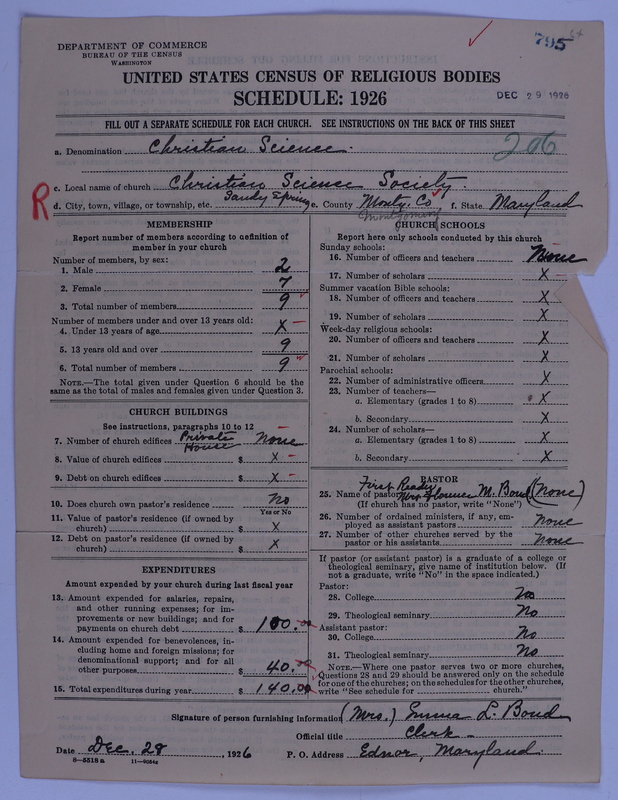 795
DEPARTMENT OF COMMERCE
BUREAU OF THE CENSUS
WASHINGTON
UNITED STATES CENSUS OF RELIGIOUS BODIES
SCHEDULE: 1926
DEC 29 1926
FILL OUT A SEPARATE SCHEDULE FOR EACH CHURCH. SEE INSTRUCTIONS ON THE BACK OF THIS SHEET
206
a. Denomination Christian Science.
R
c. Local name of church Christian Science Society.
d. City, town, village, or township, etc. Sandy Spring e. County Montg. Co f. State Maryland
Montgomery
MEMBERSHIP
Report number of members according to definition of member in your church
Number of members, by sex:
1. Male 2
2. Female 7
3. Total number of members 9
Number of members under and over 13 years old:
4. Under 13 years of age X
5. 13 years old and over 9
6. Total number of members 9
NOTE.—The total given under Question 6 should be the
same as the total of males and females given under Question 3.
CHURCH BUILDINGS
See instructions, paragraphs 10 to 12
7. Number of church edifices Private House None
8. Value of church edifices $ X
9. Debt on church edifices $ X
10. Does church own pastor's residence No
Yes or No
11. Value of pastor's residence (if owned by
church) $ X
12. Debt on pastor's residence (if owned by
church) $ X
EXPENDITURES
Amount expended by your church during last fiscal year
13. Amount expended for salaries, repairs,
and other running expenses; for im-
provements or new buildings; and for
payments on church debt $ 100.00
14. Amount expended for benevolences, in-
cluding home and foreign missions; for
denominational support; and for all
other purposes $ 40.00
15. Total expenditures during year $ 140.00
CHURCH SCHOOLS
Report here only schools conducted by this church
Sunday schools:
16. Number of officers and teachers None
17. Number of scholars X
Summer vacation Bible schools:
18. Number of officers and teachers X
19. Number of scholars X
Week-day religious schools:
20. Number of officers and teachers X
21. Number of scholars X
Parochial schools:
22. Number of administrative officers X
23. Number of teachers—
a. Elementary (grades 1 to 8) X
b. Secondary X
24. Number of scholars—
a. Elementary (grades 1 to 8) X
b. Secondary X
PASTOR
First Reader
25. Name of pastor Mrs. Florence M. Bond (None)
(If church has no pastor, write "None")
26. Number of ordained ministers, if any, em-
ployed as assistant pastors none
27. Number of other churches served by the
pastor or his assistants none
If pastor (or assistant pastor) is a graduate of a college or
theological seminary, give name of institution below. (If
not a graduate, write "No" in the space indicated.)
Pastor:
28. College No
29. Theological seminary No
Assistant pastor:
30. College No
31. Theological seminary No
NOTE.—Where one pastor serves two or more churches,
Questions 28 and 29 should be answered only on the schedule
for one of the churches; on the schedules for the other churches,
write "See schedule for church."
Signature of person furnishing information (Mrs.) Emma L. Bond
Official title Clerk
Date Dec. 28, 1926 P. O. Address Ednor, Maryland.
8—5518a 11—9064c